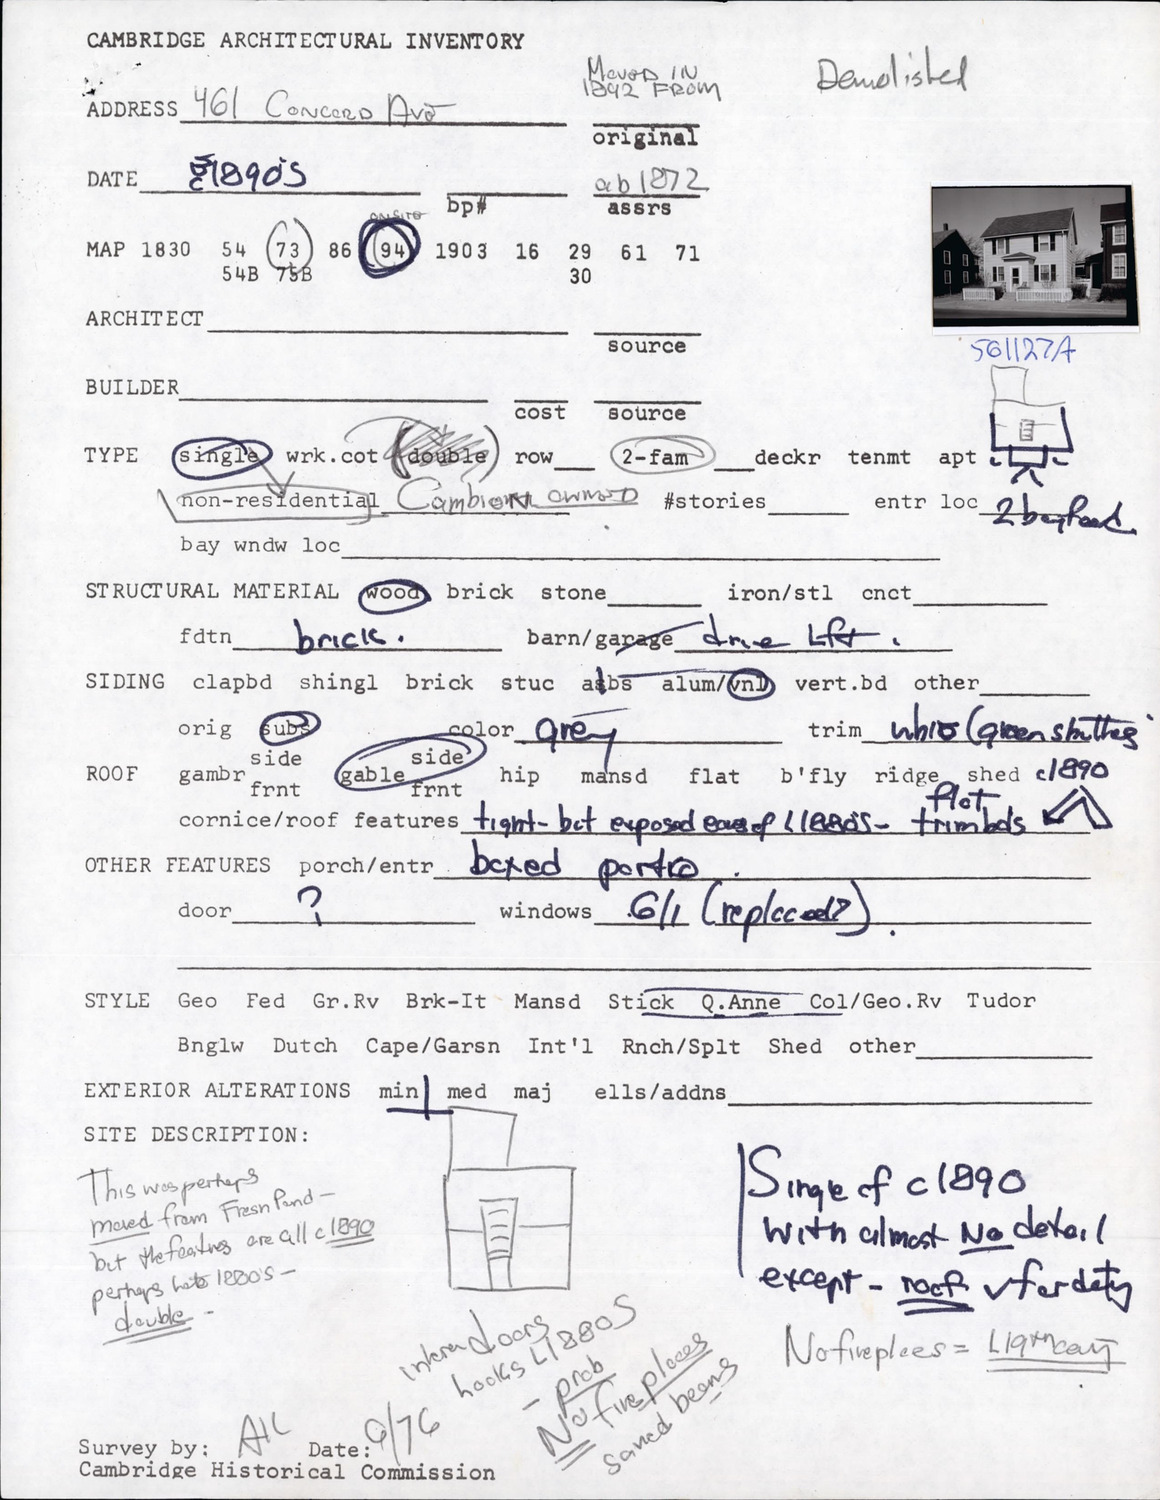 CAMBRIDGE ARCHITECTURAL INVENTORY
MOVED IN
1892 FROM
Demolished
ADDRESS 461 CONCORD AVE
original
DATE 1890's
bp#
ab 1872
assrs
ON SITE
MAP 1830 54 73 86 94 1903 16 29 61 71
54B 75B 30
ARCHITECT
source
561127A
BUILDER
cost source
TYPE single wrk.cot (double) row 2-fam deckr tenmt apt
non-residential Cambion owned #stories entr loc 2 bay
bay wndw loc
STRUCTURAL MATERIAL wood brick stone iron/stl cnct
fdtn brick. barn/garage drive Lft.
SIDING clapbd shingl brick stuc asbs alum/vnl vert.bd other
orig subs color grey trim white (green shutters
side side
ROOF gambr gable hip mansd flat b'fly ridge shed c1890
frnt frnt
flat
cornice/roof features tight - but exposed eaves of L1880's - trimbds
OTHER FEATURES porch/entr boxed portico
door ? windows 6/1 (replaced?)
STYLE Geo Fed Gr.Rv Brk-It Mansd Stick Q.Anne Col/Geo.Rv Tudor
Bnglw Dutch Cape/Garsn Int'l Rnch/Splt Shed other
EXTERIOR ALTERATIONS min med maj ells/addns
SITE DESCRIPTION:
This was perhaps
moved from Fresh Pond -
but the features are all c1890
perhaps late 1880's -
double -
Single of c1890
with almost No detail
except - roof ✓ for dating
No fireplces = L19th cent
interior doors
looks L1880S
- prob
No fireplaces
sawed beams
Survey by: AK Date: 9/76
Cambridge Historical Commission